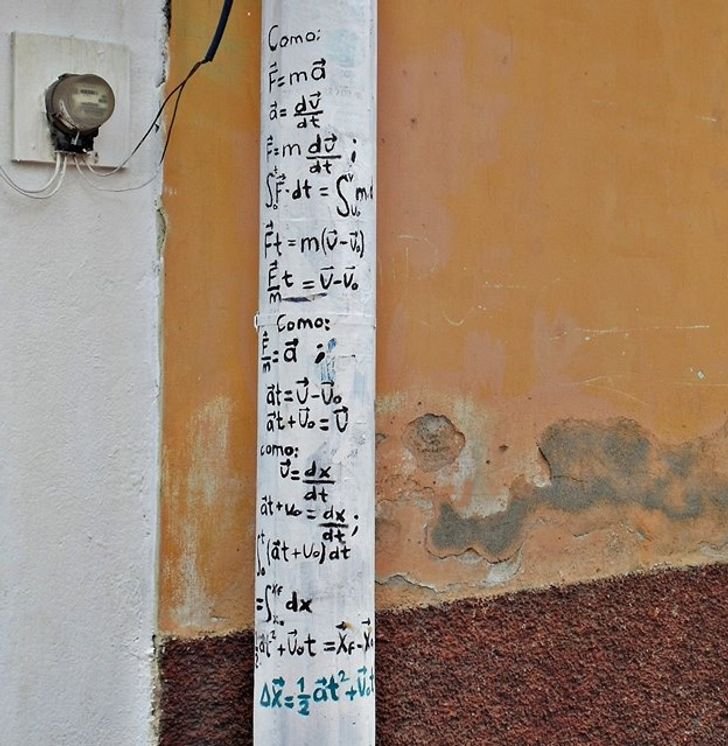 Como:
F⃗=ma⃗
a⃗= dv⃗/dt
F⃗=m dv⃗/dt ;
∫₀ᵗF⃗·dt = ∫ᵥ₀ᵛ m
F⃗t = m(v⃗-v⃗₀)
F⃗/m t = v⃗-v⃗₀
Como:
F⃗/m = a⃗ ;
a⃗t=v⃗-v⃗₀
a⃗t+v⃗₀=v⃗
como:
v⃗= dx/dt
a⃗t+v₀ = dx/dt ;
∫₀ᵗ(a⃗t+v₀)dt
=∫ₓ₀ˣᶠ dx
½a⃗t²+v⃗₀t = x⃗f-x⃗₀
Δx⃗=½a⃗t²+v⃗₀t